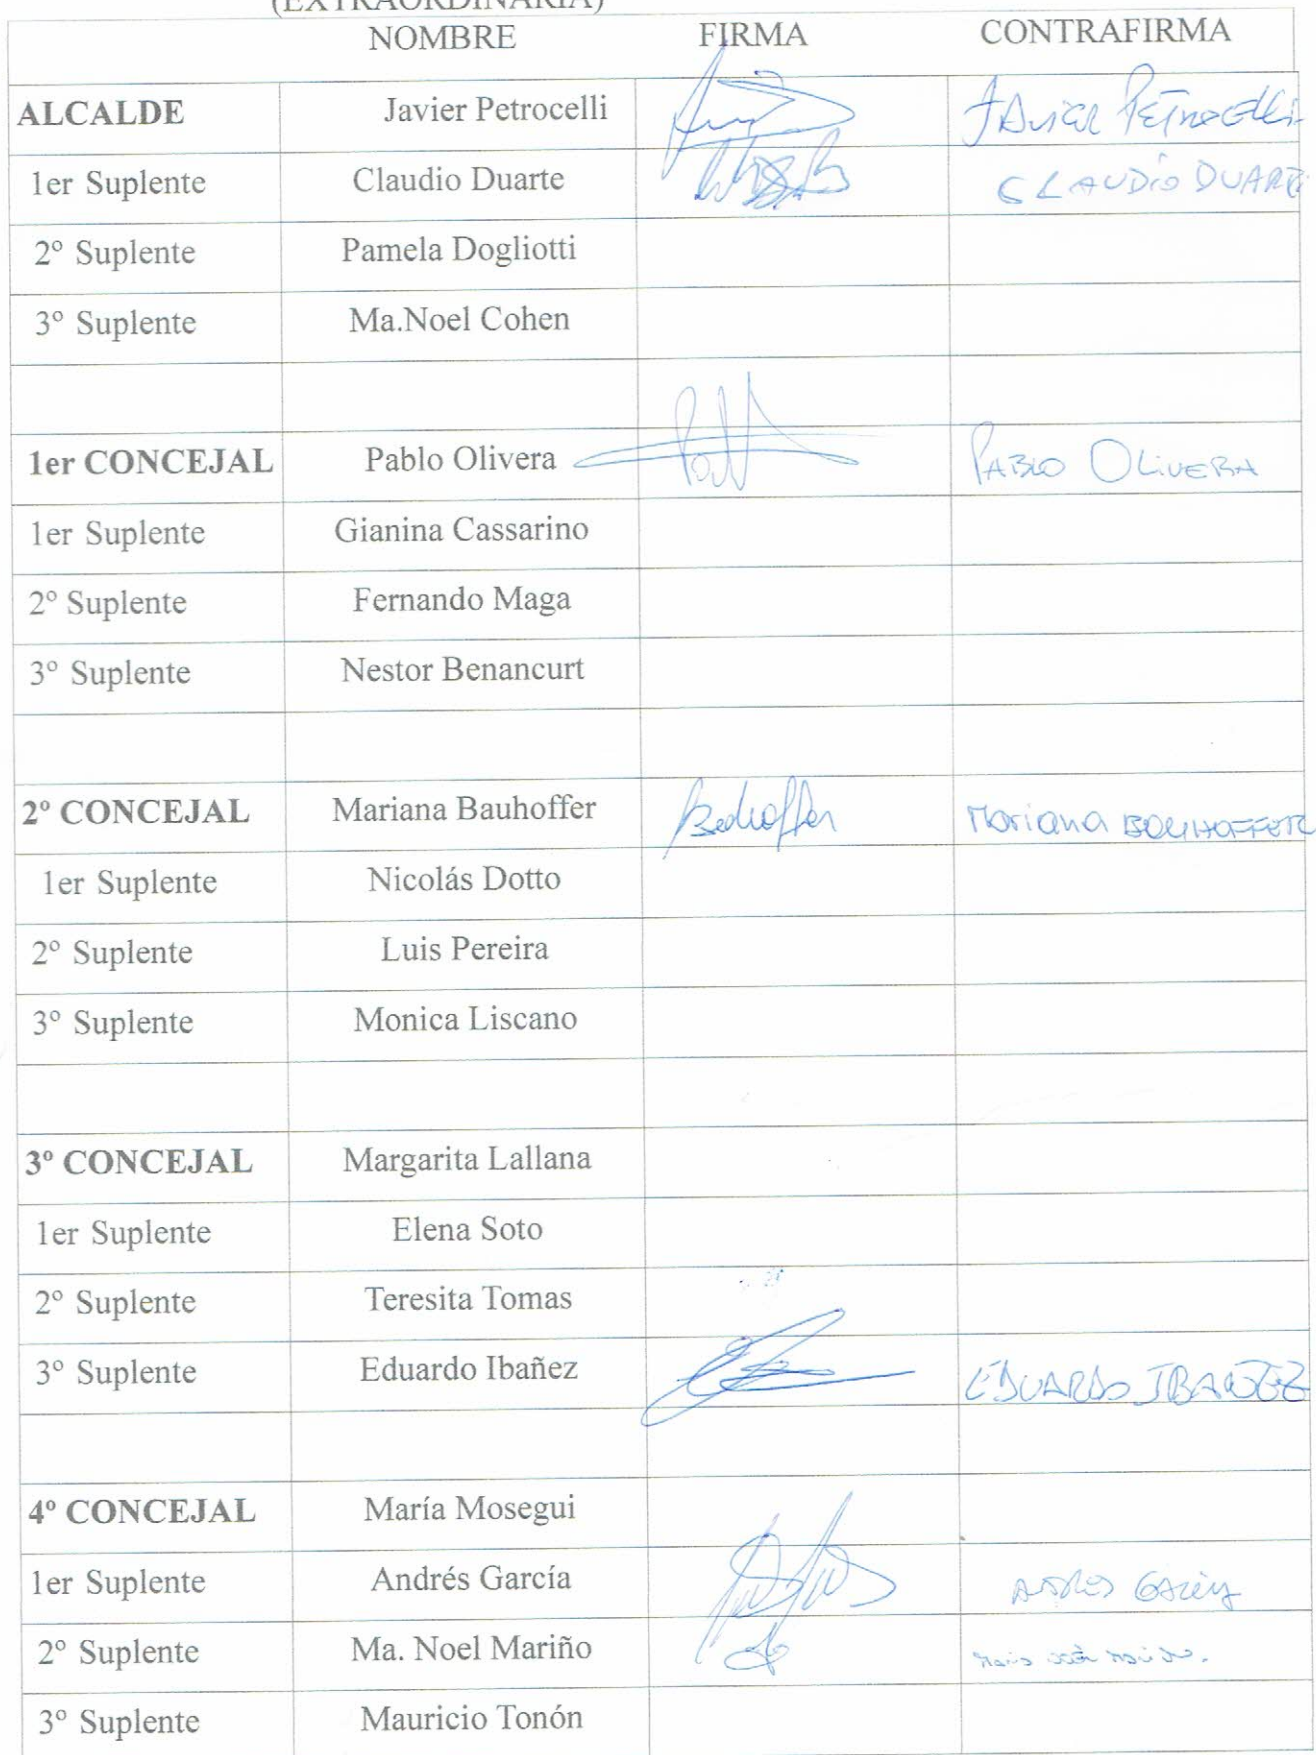 (EXTRAORDINARIA)
NOMBRE FIRMA CONTRAFIRMA
ALCALDE Javier Petrocelli Javier Petrocelli
1er Suplente Claudio Duarte CLAUDIO DUARTE
2º Suplente Pamela Dogliotti
3º Suplente Ma.Noel Cohen
1er CONCEJAL Pablo Olivera PABLO OLIVERA
1er Suplente Gianina Cassarino
2º Suplente Fernando Maga
3º Suplente Nestor Benancurt
2º CONCEJAL Mariana Bauhoffer Mariana BAUHOFFER
1er Suplente Nicolás Dotto
2º Suplente Luis Pereira
3º Suplente Monica Liscano
3º CONCEJAL Margarita Lallana
1er Suplente Elena Soto
2º Suplente Teresita Tomas
3º Suplente Eduardo Ibañez EDUARDO IBAÑEZ
4º CONCEJAL María Mosegui
1er Suplente Andrés García
2º Suplente Ma. Noel Mariño
3º Suplente Mauricio Tonón